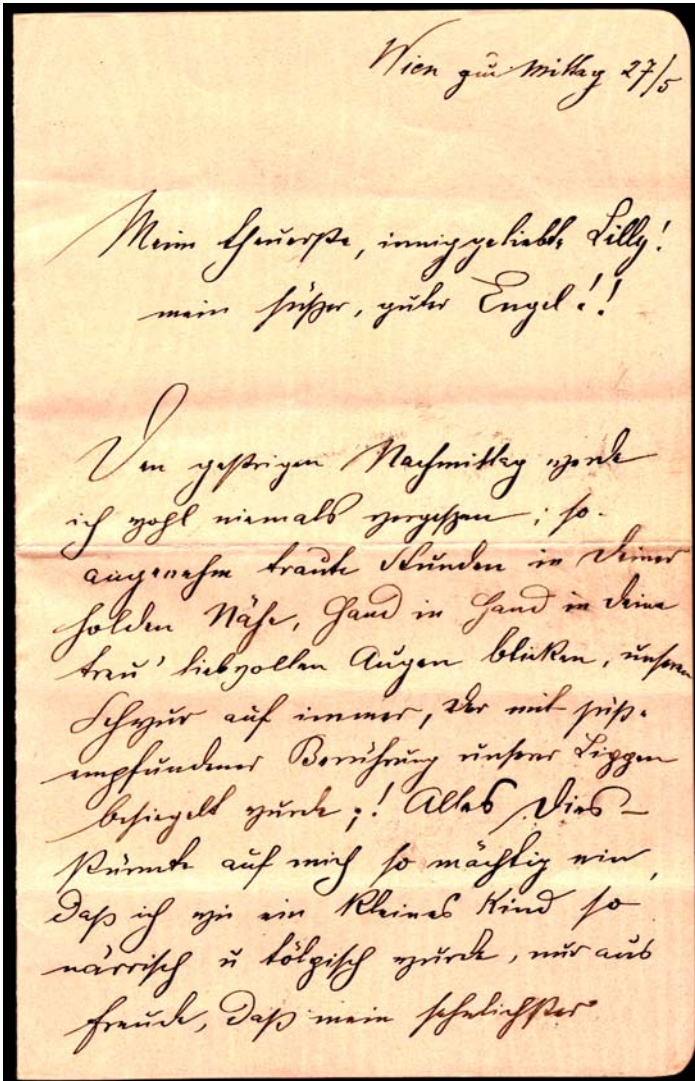 Wien zu Mittag 27/5
Mein theuerste, inniggeliebte Lilly!
mein süßer, guter Engel!!
Den gestrigen Nachmittag werde
ich wohl niemals vergeßen; so
angenehm traute Stunden in Deiner
holden Nähe, Hand in Hand in Deine
treu' liebvollen Augen blicken, unseren
Schwur auf immer, der mit süß-
empfundener Berührung unserer Lippen
besiegelt wurde;! Alles Dies –
stürmte auf mich so mächtig ein,
daß ich wie ein kleines Kind so
närrisch u tölpisch wurde, nur aus
Freude, daß mein sehnlichster